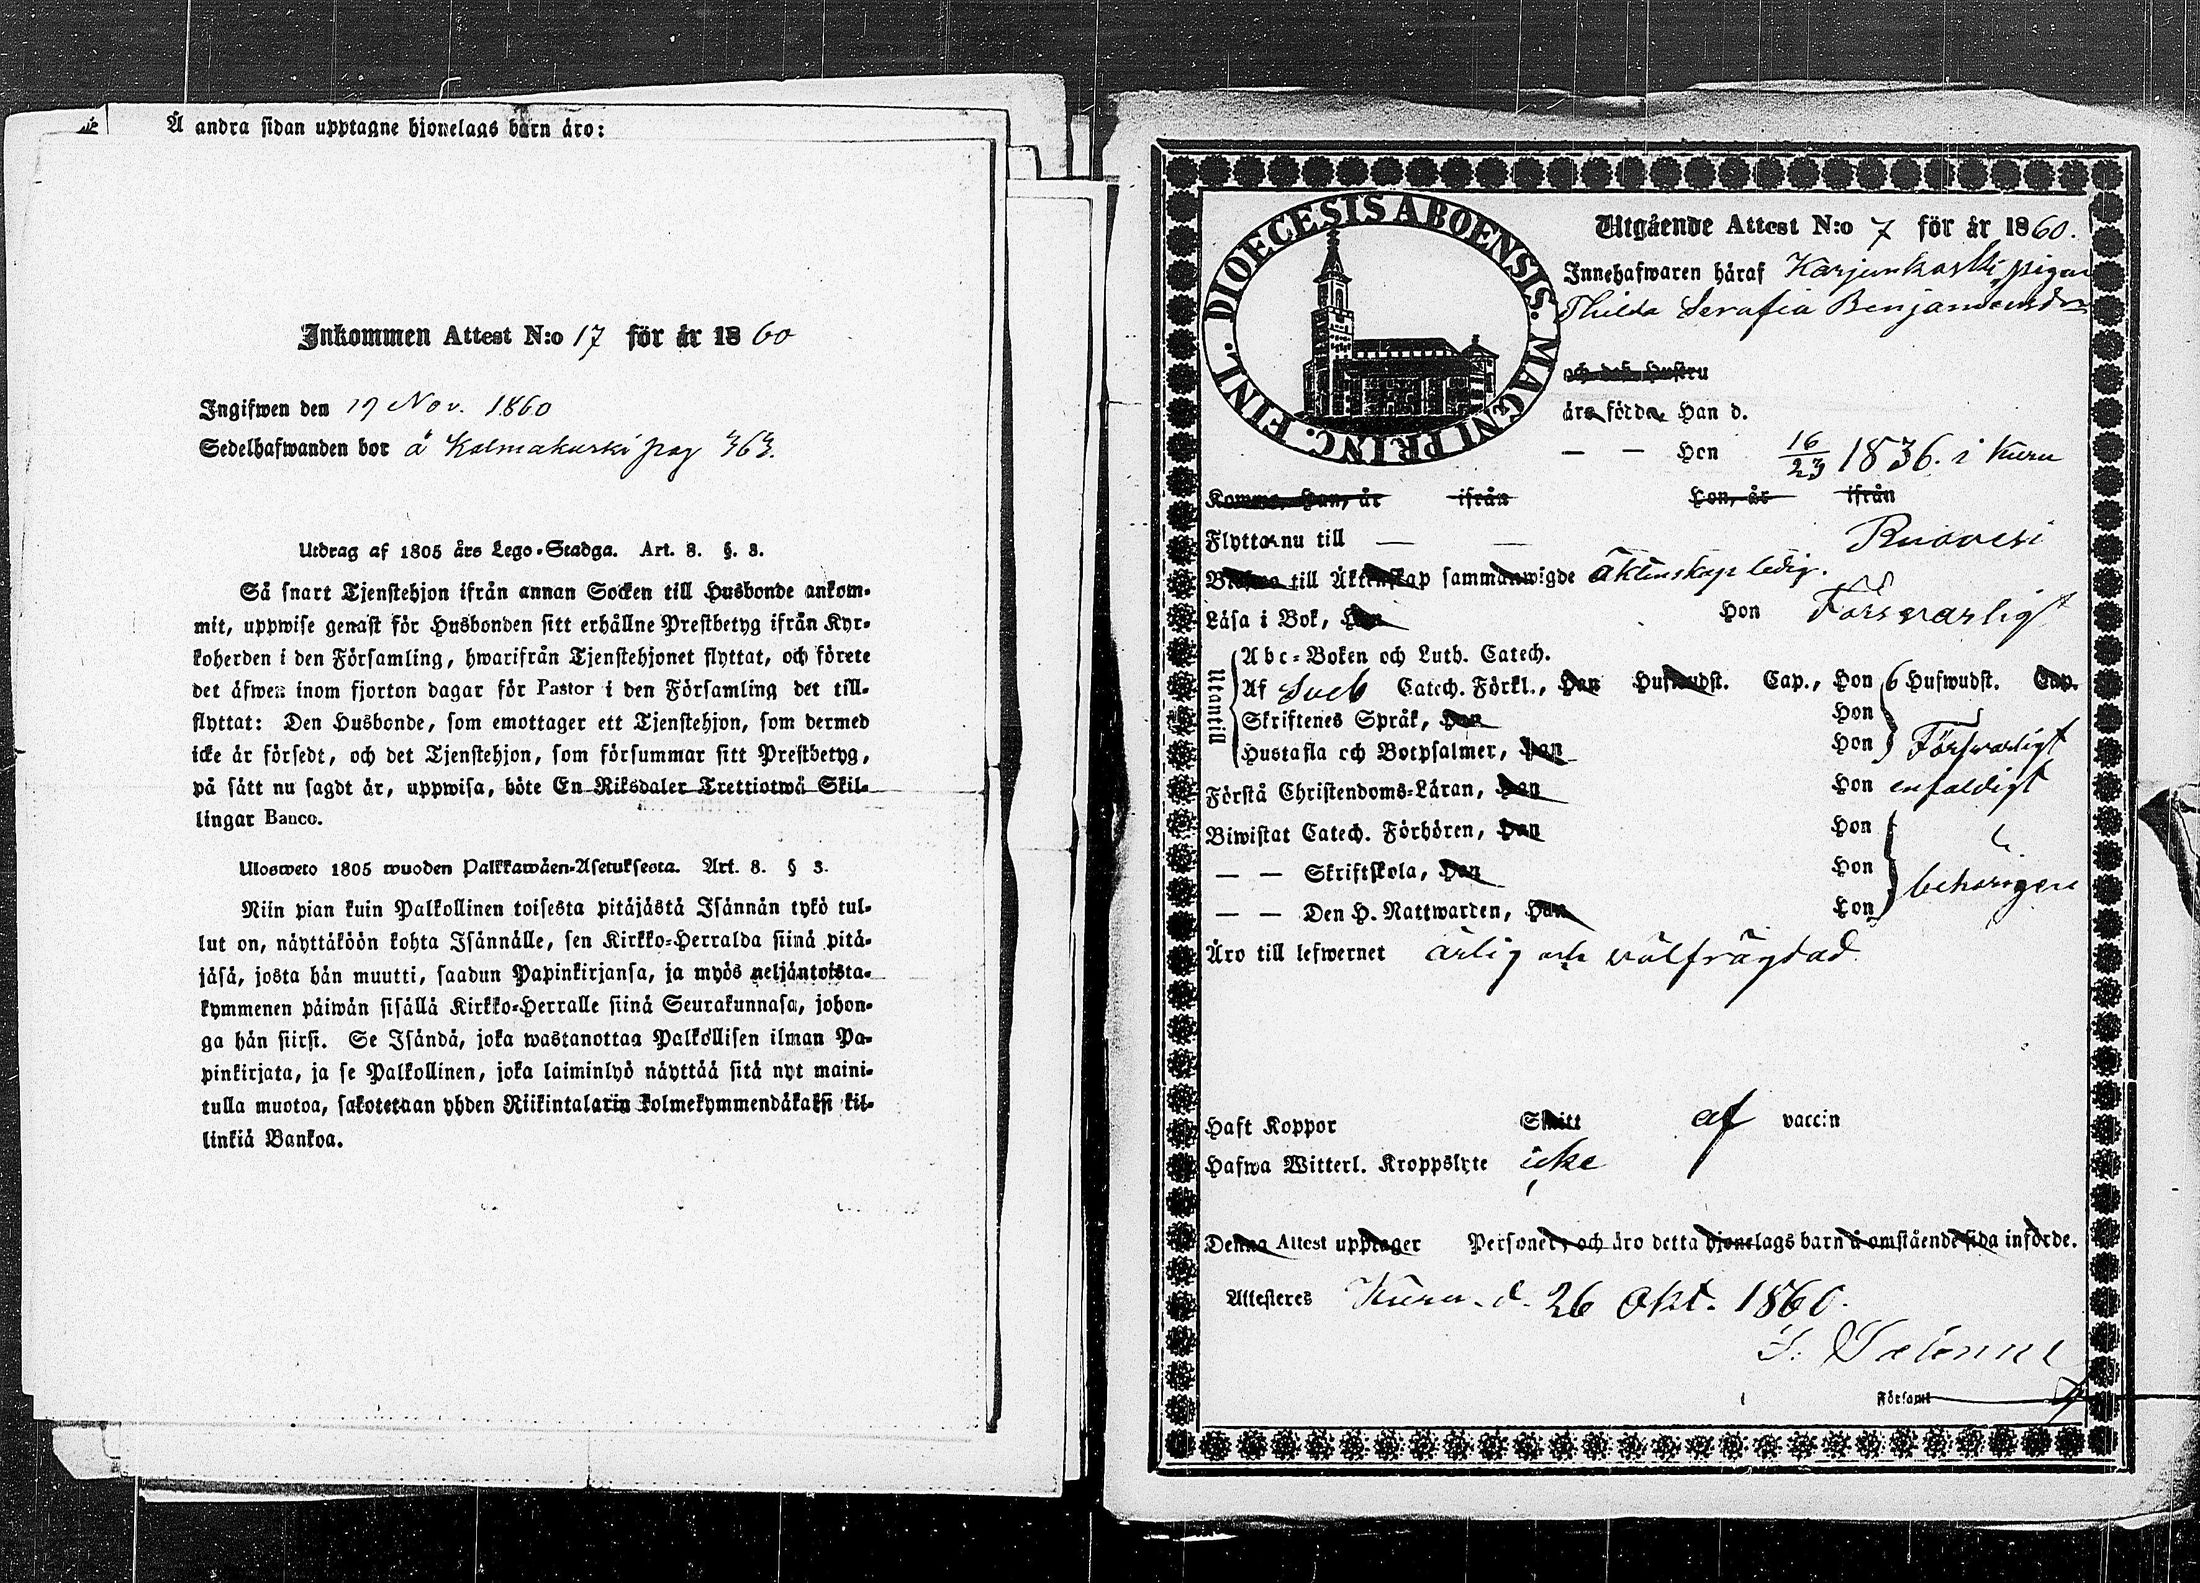 Å andra sidan upptagne hjonelags barn äro:
Inkommen Attest N:o 17 för år 1860
Ingifwen den 19 Nov. 1860
Sedelhafwanden bor å Kolmakuski pag 363.
Utdrag af 1805 års Lego-Stadga. Art. 8. §. 3.
Så snart Tjenstehjon ifrån annan Socken till Husbonde ankom-
mit, uppwise genast för Husbonden sitt erhållne Prestbetyg ifrån Kyr-
koherden i den Församling, hwarifrån Tjenstehjonet flyttat, och förete
det äfwen inom fjorton dagar för Pastor i den Församling det till-
flyttat: Den Husbonde, som emottager ett Tjenstehjon, som dermed
icke är försedt, och det Tjenstehjon, som försummar sitt Prestbetyg,
på sätt nu sagdt är, uppwisa, böte En Riksdaler Trettiotwå Skil-
lingar Banco.
Ulosweto 1805 wuoden Palkkawäen-Asetuksesta. Art. 8. § 3.
Niin pian kuin Palkollinen toisesta pitäjästä Isännän tykö tul-
lut on, näyttäköön kohta Isännälle, sen Kirkko-Herralda siinä pitä-
jäsä, josta hän muutti, saadun Papinkirjansa, ja myös neljäntoista-
kymmenen päiwän sisällä Kirkko-Herralle siinä Seurakunnasa, johon-
ga hän siirsi. Se Isändä, joka wastanottaa Palkollisen ilman Pa-
pinkirjata, ja se Palkollinen, joka laiminlyö näyttää sitä nyt maini-
tulla muotoa, sakotetaan yhden Riikintalarin kolmekymmendäkaksi kil-
linkiä Bankoa.
DIOECESIS ABOENSIS. MAGNI PRINC. FINL.
Utgående Attest N:o 7 för år 1860.
Innehafwaren häraf Karjunkoski, pigan
Thilda Serafia Benjaminsdr
och dess Hustru
äro födde, Han d.
— — Hon 16/23 1836. i Kuru
Komma, Han, år ifrån Hon, år ifrån
Flytta nu till — — Ruovesi
till Äktenskap sammanwigde äktenskap ledig.
Läsa i Bok, Han Hon Försvarligt
Utantill
Abc-Boken och Luth. Catech.
Af Sveb Catech. Förkl., Han Hufwudst. Cap., Hon 6 Hufwudst. Cap.
Skriftenes Språk, Han Hon
Hustafla och Botpsalmer, Han Hon Försvarligt
Förstå Christendoms-Läran, Han Hon enfaldigt
Biwistat Catech. Förhören, Han Hon
— — Skriftskola, Han Hon behörigen
— — Den H. Nattwarden, Han Hon
Äro till lefwernet ärlig och välfrägdad
Haft Koppor Skitt af vaccin
Hafwa Witterl. Kroppslyte icke
Denna Attest upptager Personer, och äro detta hjonelags barn å omstående sida införde.
Attesteres Kuru d. 26 Okt. 1860.
Församl